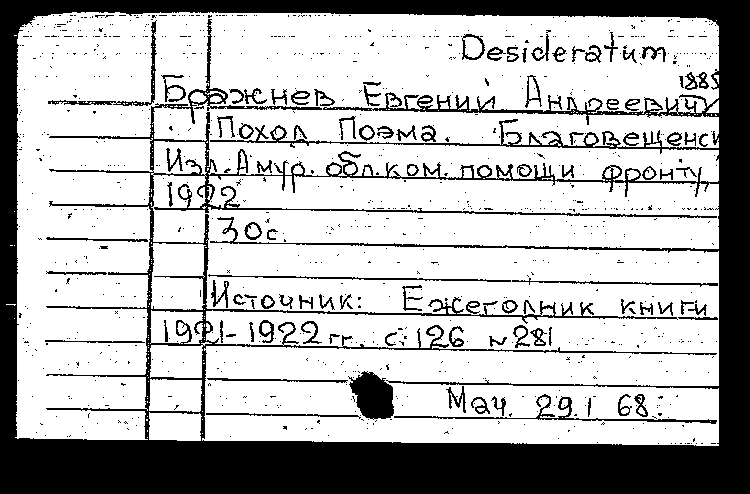 Desideratum.
1885
Бражнев Евгений Андреевич
Поход Поэма. Благовещенск
Изд. Амур. обл. ком. помощи фронту,
1922
30 с.
Источник: Ежегодник книги
1921-1922 гг. с. 126 № 281
Мач. 29.I 68.